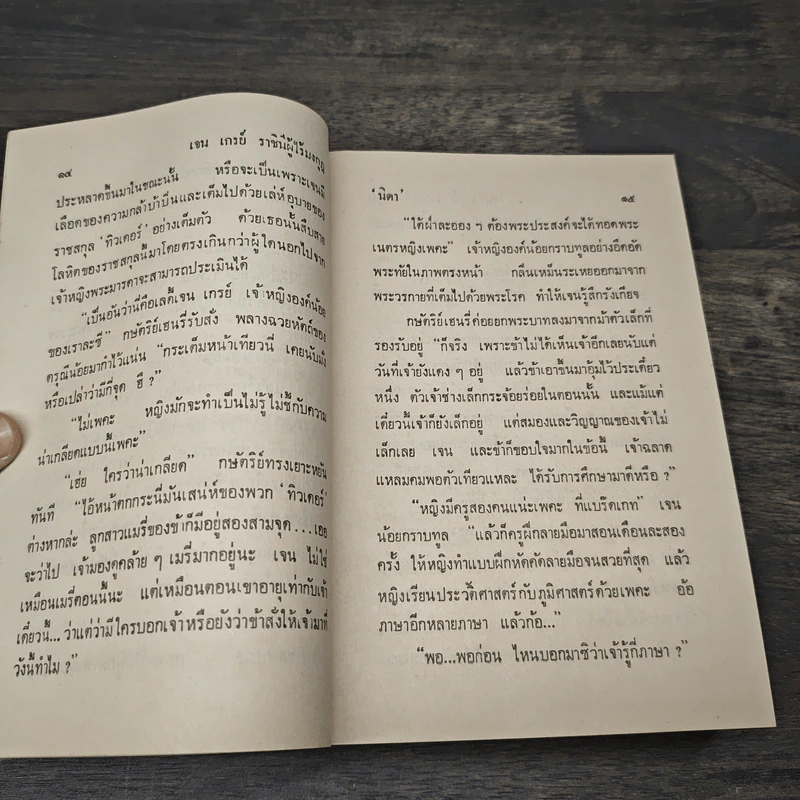 ๑๔
เจน เกรย์ ราชินีผู้ไร้มงกุฎ
ประหลาดขึ้นมาในขณะนั้น หรือจะเป็นเพราะเจนมี
เลือดของความกล้าบ้าบิ่นและเต็มไปด้วยเล่ห์อุบายของ
ราชสกุล ‘ทิวเดอร์’ อย่างเต็มตัว ด้วยเธอนั้นสืบสาย
โลหิตของราชสกุลนี้มาโดยตรงเกินกว่าผู้ใดนอกไปจาก
เจ้าหญิงพระมารดาจะสามารถประเมินได้
“เป็นอันว่านี่คือเลดี้เจน เกรย์ เจ้าหญิงองค์น้อย
ของเราละซี” กษัตริย์เฮนรี่รับสั่ง พลางฉวยหัตถ์ของ
ดรุณีน้อยมากำไว้แน่น “กระเต็มหน้าเทียวนี่ เคยนับมั่ง
หรือเปล่าว่ามีกี่จุด ฮึ ?”
“ไม่เพคะ หญิงมักจะทำเป็นไม่รู้ไม่ชี้กับความ
น่าเกลียดแบบนี้เพคะ”
“เฮ่ย ใครว่าน่าเกลียด” กษัตริย์ทรงเยาะหยัน
ทันที “ไอ้หน้าตกกระนี่มันเสน่ห์ของพวก ‘ทิวเดอร์’
ต่างหากล่ะ ลูกสาวแมรี่ของข้าก็มีอยู่สองสามจุด...เออ
จะว่าไป เจ้ามองดูคล้าย ๆ เมรี่มากอยู่นะ เจน ไม่ใช่
เหมือนเมรี่ตอนนี้นะ แต่เหมือนตอนเขาอายุเท่ากับเจ้า
เดี๋ยวนี้... ว่าแต่ว่ามีใครบอกเจ้าหรือยังว่าข้าสั่งให้เจ้ามาที่
วังนี้ทำไม ?”
‘นิดา’
๑๕
“ใต้ฝ่าละออง ๆ ต้องพระประสงค์จะได้ทอดพระ
เนตรหญิงเพคะ” เจ้าหญิงองค์น้อยกราบทูลอย่างอึดอัด
พระทัยในภาพตรงหน้า กลิ่นเหม็นระเหยออกมาจาก
พระวรกายที่เต็มไปด้วยพระโรค ทำให้เจนรู้สึกรังเกียจ
กษัตริย์เฮนรี่ค่อยยกพระบาทลงมาจากม้าตัวเล็กที่
รองรับอยู่ “ก็จริง เพราะข้าไม่ได้เห็นเจ้าอีกเลยนับแต่
วันที่เจ้ายังแดง ๆ อยู่ แล้วข้าเอาขึ้นมาอุ้มไว้ประเดี๋ยว
หนึ่ง ตัวเจ้าช่างเล็กกระจ้อยร่อยในตอนนั้น และแม้แต่
เดี๋ยวนี้เจ้าก็ยังเล็กอยู่ แต่สมองและวิญญาณของเจ้าไม่
เล็กเลย เจน และข้าก็ชอบใจมากในข้อนี้ เจ้าฉลาด
แหลมคมพอตัวเทียวแหละ ได้รับการศึกษามาดีหรือ ?”
“หญิงมีครูสองคนแน่ะเพคะ ที่แบร๊ดเกท” เจน
น้อยกราบทูล “แล้วก็ครูฝึกลายมือมาสอนเดือนละสอง
ครั้ง ให้หญิงทำแบบฝึกหัดคัดลายมือจนสวยที่สุด แล้ว
หญิงเรียนประวัติศาสตร์กับภูมิศาสตร์ด้วยเพคะ อ้อ
ภาษาอีกหลายภาษา แล้วก้อ...”
“พอ...พอก่อน ไหนบอกมาซิว่าเจ้ารู้กี่ภาษา ?”